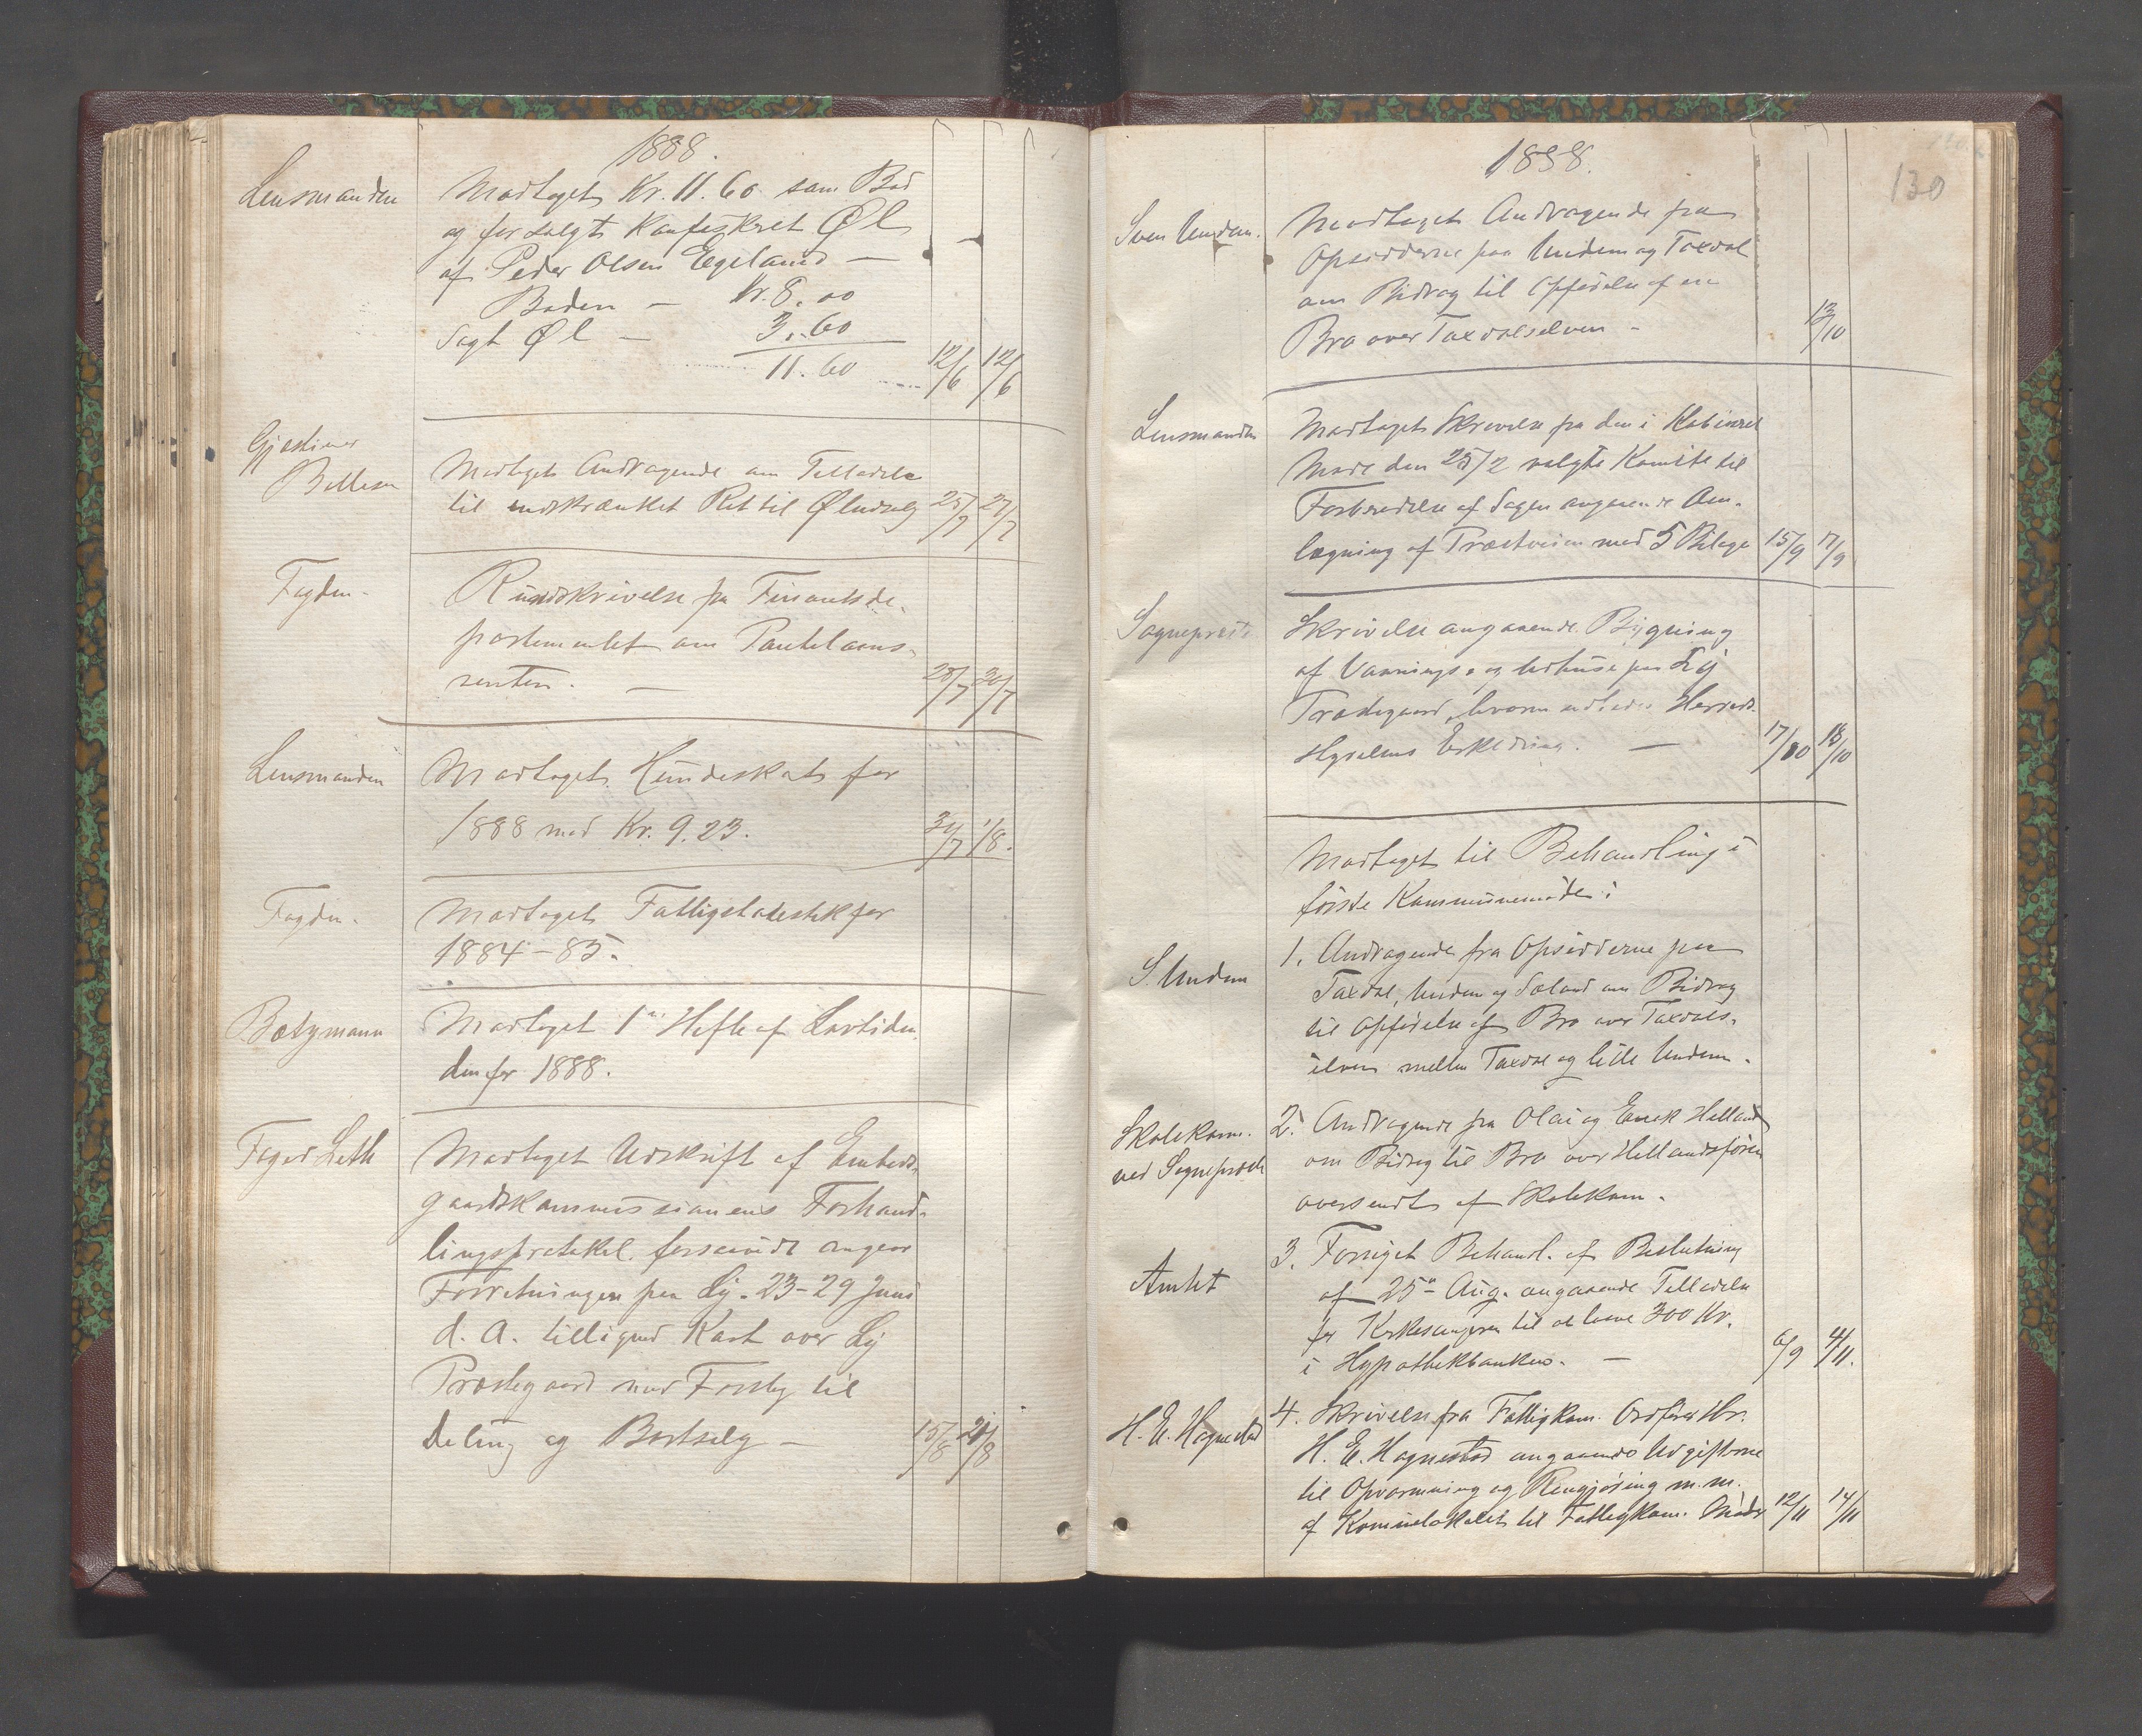 1888.
Lensmanden
Modtaget Kr. 11.60 som Bod
og for solgt konfiskeret Øl
af Peder Olsen Egeland —
Boden — Kr. 8.00
Sogt Øl — 3.60
11.60
12/6 12/6
Gjæstiver
Modtaget Andragende om Tilladelse
til indskrænket Ret til Øludsalg
25/7 27/7
Fogden.
Rundskrivelse fra Finantsde-
partementet om Pantelaans-
renten. —
28/7 30/7
Lensmanden
Modtaget Hundeskat for
1888 med Kr. 9.23.
31/7 1/8.
Fogden.
Modtaget Fattigstatistik for
1884–85.
Bætzmann
Modtaget 1ste Hefte af Lovtiden
den for 1888.
Foged Leth
Modtaget Udskrift af Embeds-
gaardskommissionens Forhand-
lingsprotokol forsaavidt angaar
Forretningen paa Lÿ. 23–29 Juni
d. A. tilligemed Kart over Lÿ
Præstegaard med Forslag til
Deling og Bortsalg —
15/8 21/8
1888.
130
Sven Undem.
Modtaget Andragende fra
Opsidderne paa Undem og Taxdal
om Bidrag til Opførelse af en
Bro over Taxdalselven —
13/10
Lensmanden
Modtaget Skrivelse fra den i
Møde den 25/2 valgte Komite til
Forberedelse af Sagen angaaende Om-
lægning af Præstveien med 5 Bilage
15/9 17/9
Sognepresten
Skrivelse angaaende Bygning
af Vaanings- og Udhuse paa Lÿ
Præstegaard, hvorom udbedes Herreds-
styrelsens Erklæring. —
17/10 18/10
Modtaget til Behandling i
første Kommunemøde:
S. Undem
1. Andragende fra Opsidderne paa
Taxdal, Undem og Sæland om Bidrag
til Opførelse af Bro over Taxdals-
elven mellem Taxdal og lille Undem.
Skolekom.
ved Sognepresten
2. Andragende fra Olai og Enok Helland
om Bidrag til Bro over Hellandsføren
oversendt af Skolekom.
Amtet
3. Fornyet Behandl. af Beslutning
af 25de Aug. angaaende Tilladelse
for Kirkesangeren til at laane 300 Kr.
i Hypothekbanken. —
6/9 4/11.
H. E. Hognestad
4. Skrivelse fra Fattigkom. Ordfører Hr.
H. E. Hognestad angaaende Udgifterne
til Opvarmning og Rengjøring m. m.
af Komunelokalet til Fattigkom. Møder
12/11 14/11